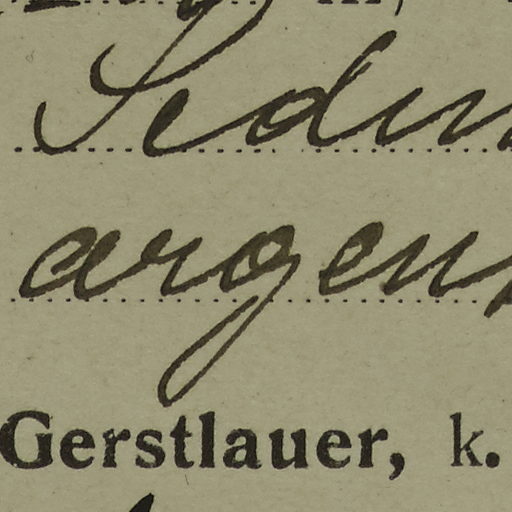 Sedu
argen
Gerstlauer, k.